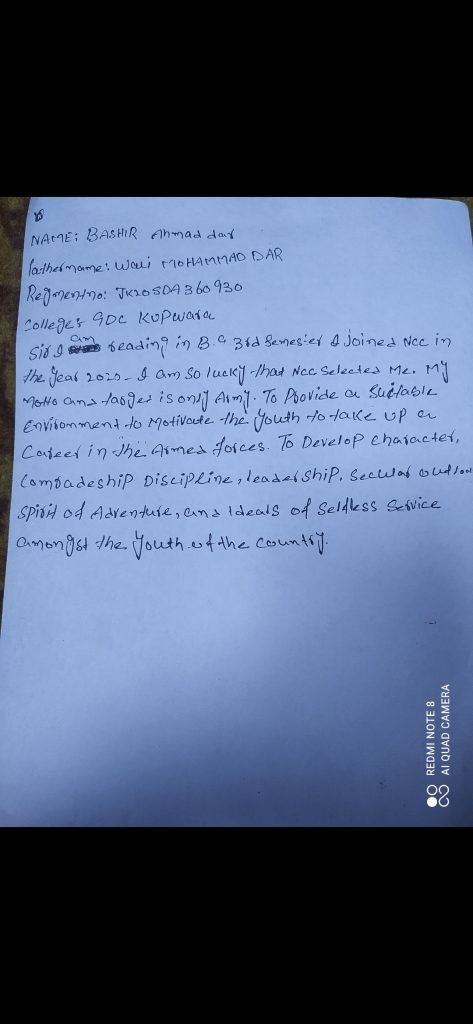 NAME: BASHIR Ahmad dar
father name: Wali MOHAMMAD DAR
Regment no: JK20SDA360930
College: GDC Kupwara
Sir I am reading in B.A 3rd Semester I joined NCC in
the year 2020- I am so lucky that NCC Selected Me. My
Motto and target is only Army. To Provide a Suitable
Environment to Motivate the Youth to take up a
Career in the Armed forces. To Develop Character,
Comradeship Discipline, leadership, Secular outloo
Spirit of Adventure, and Ideals of Selfless Service
amongst the Youth of the country.
REDMI NOTE 8
AI QUAD CAMERA